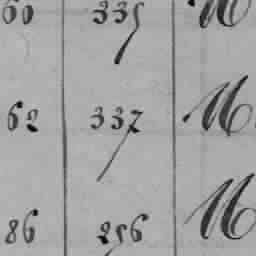 60 335 M
62 337 M
86 256 M